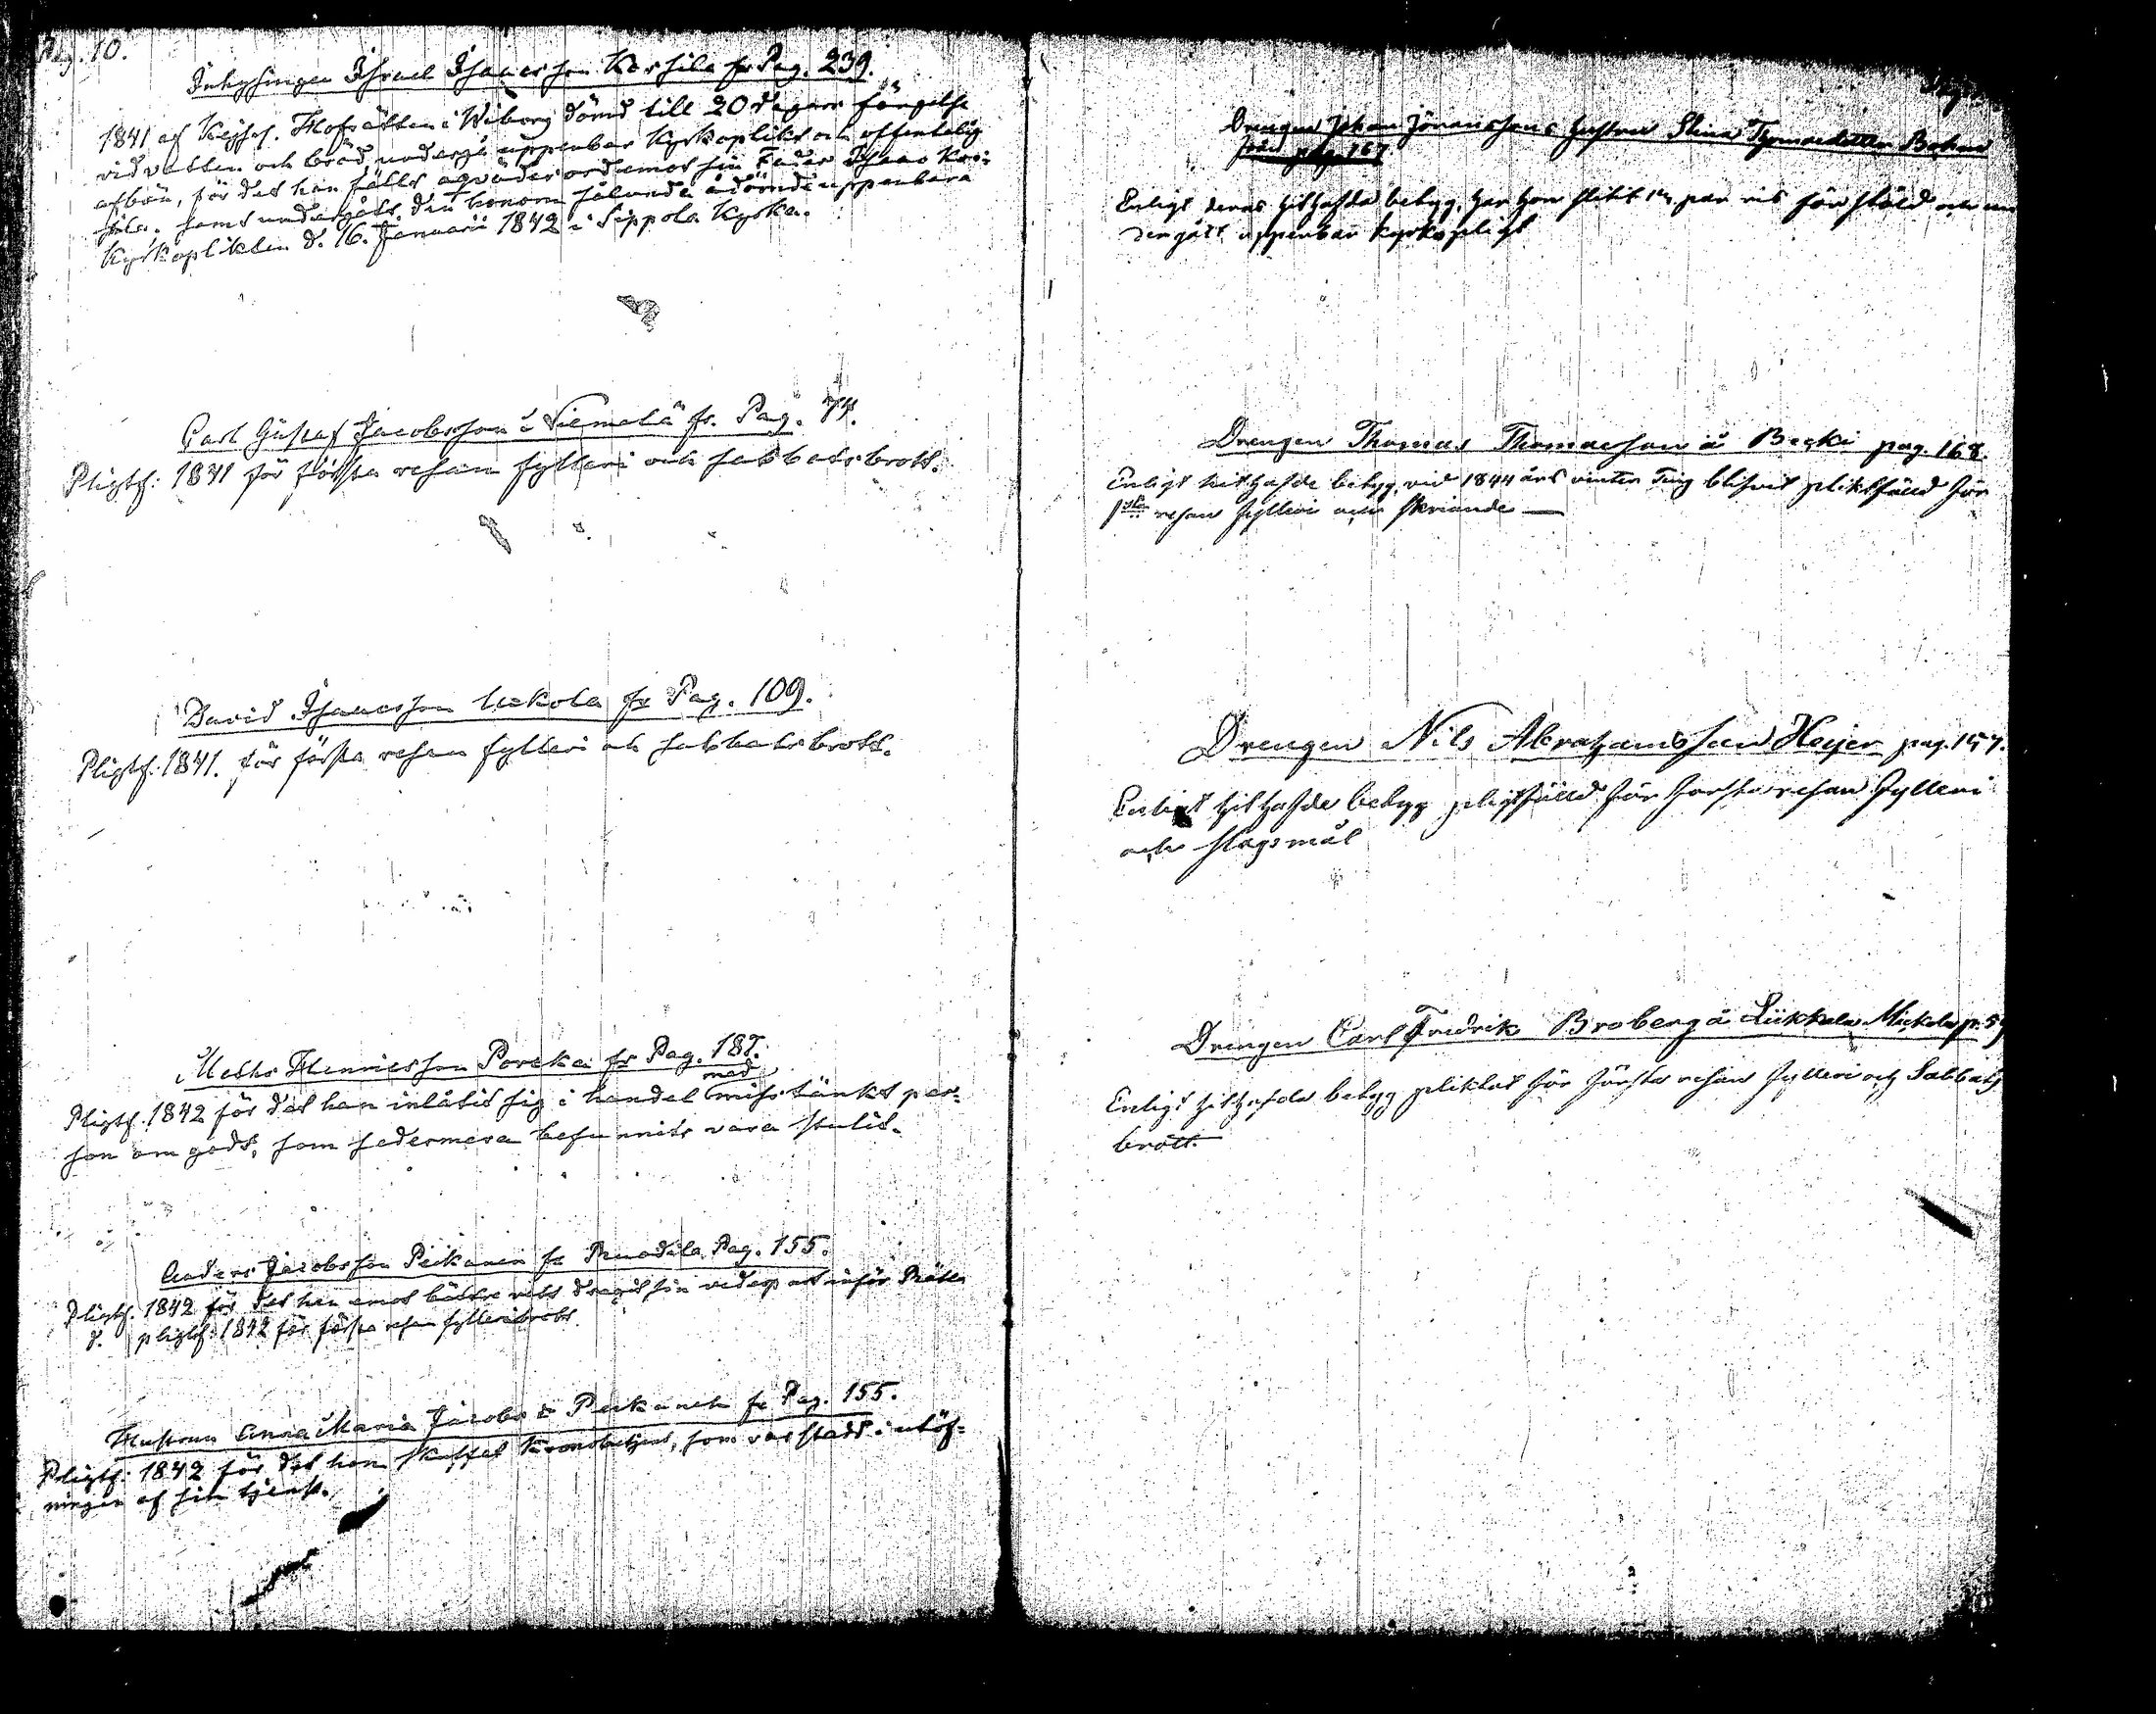 Pag. 10.
Inhysingen Israel Isaacsson Korsila fr Pag. 239.
1841 af Kejserl. Hofrätten i Wiborg dömd till 20 dagars fängelse
vid vatten och bröd, undergå uppenbar Kyrkoplikt och offentelig
afbön, för det han fällt oqvädes ord emot sin Fader Isaac Kor-
sila. samt undergått den honom sålunda ådömde uppenbara
Kyrkoplikten d. 16. Januarii 1842 i Sippola Kyrka.
Carl Gustaf Jacobsson i Niemelä fr. Pag. 74.
Pligtf. 1841 för första resan fylleri och sabbatsbrott.
David Isaacsson Uekola fr Pag. 109.
Pligtf. 1841. för första resan fylleri och sabbatsbrott.
Matts Henricsson Poroka fr Pag. 187.
med
Pligtf. 1842 för det han inlåtit sig i handel misstänkt per-
son om gods, som sedermera befunnits vara stulit.
Anders Jacobsson Peikanen fr Pag. 155.
Pligtf. 1842 för det han emot bättre vett dragit sin vederpart inför Rätta
d. pligtf. 1842 för första resan fylleribrott.
Hustrun Anna Maria Jacobs d Peikanen fr Pag. 155.
Pligtf. 1842 för det hon skuffat Kronobetjent, som var stadd i utöf-
ningen af sin tjenst.
Drengen Johan Jöranssons hustru Stina Thomasdotter
från pag. 167
Enligt deras hithafda betyg, har hon slitit 14 par ris för stöld och un
dergått uppenbar kyrkopligt
Drengen Thomas Thomasson å Becki pag. 168.
Enligt hithafde betyg, vid 1844 års vinter Ting blifvit pliktfälld för
1sta resan fylleri och skriande —
Drengen Nils Abrahamsson Heijer pag. 157.
Enligt hithafde betyg pligtfälld för första resan fylleri
och slagsmål
Drengen Carl Fredrik Broberg å Liikkala Mickola p. 59
Enligt hithafde betyg pliktat för första resan fylleri och Sabbats
brott.